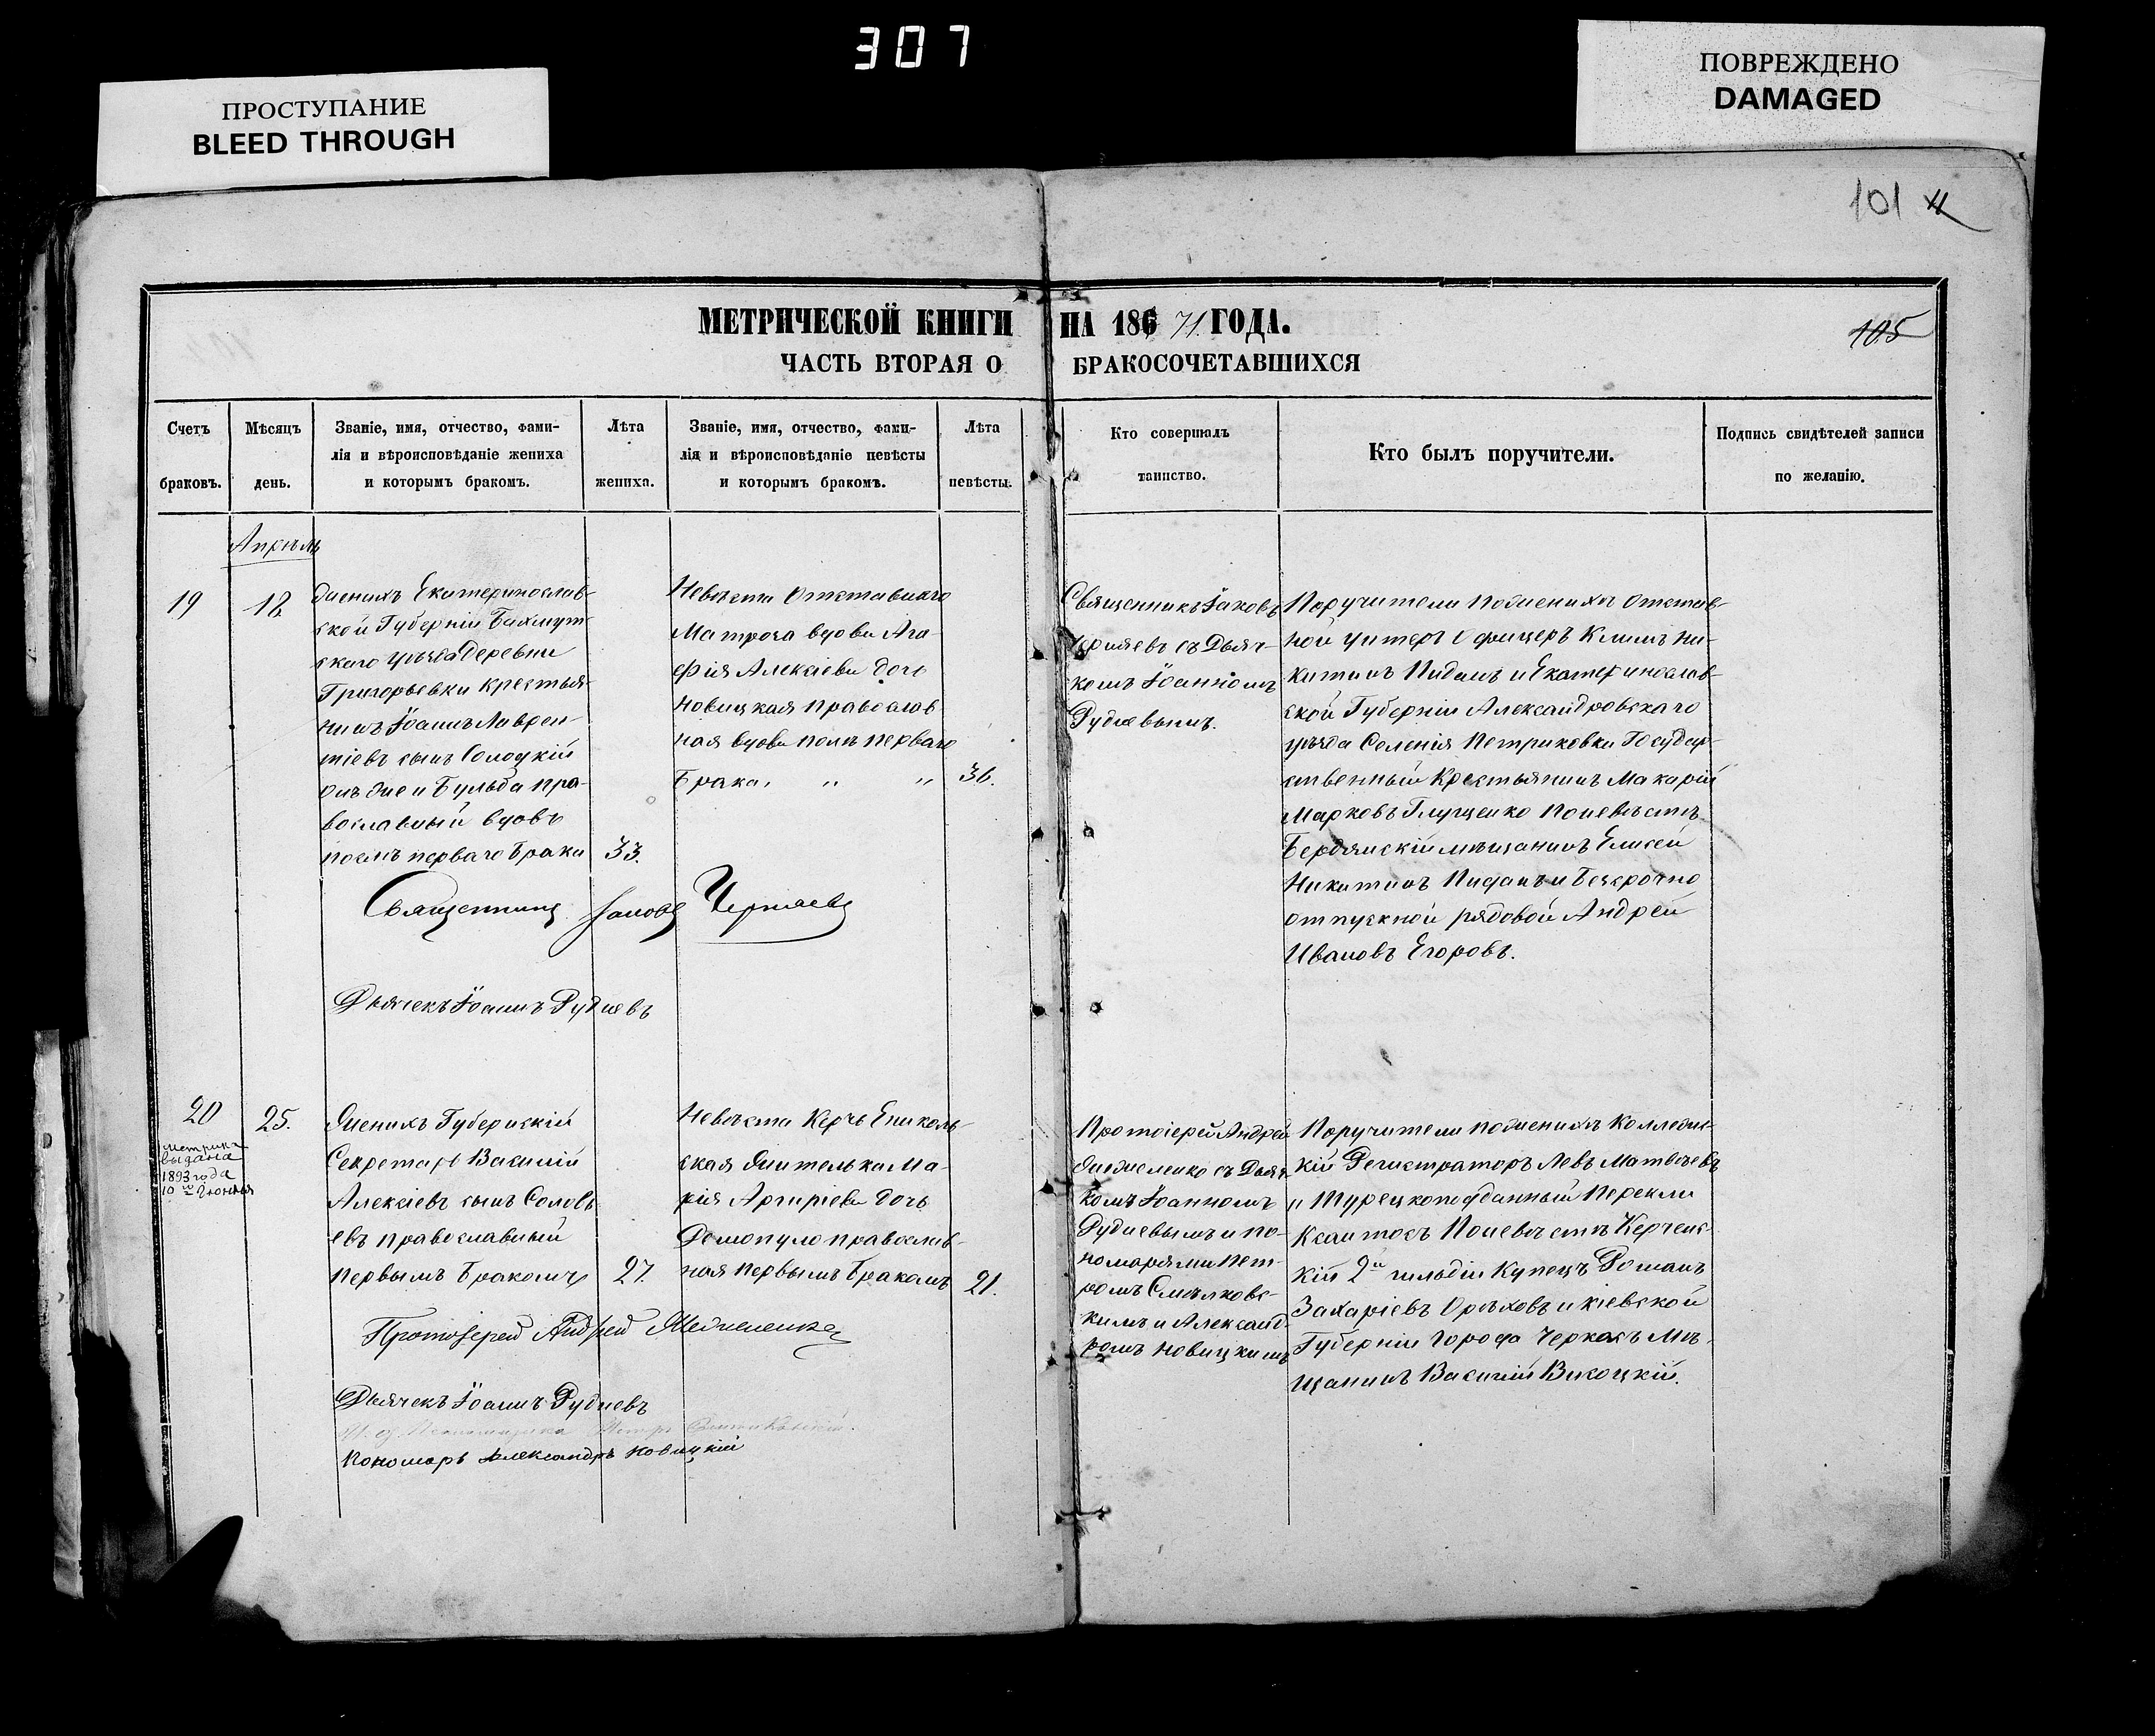 307
ПРОСТУПАНИЕ
BLEED THROUGH
ПОВРЕЖДЕНО
DAMAGED
101
МЕТРИЧЕСКОЙ КНИГИ НА 186 71. ГОДА.
105
ЧАСТЬ ВТОРАЯ О БРАКОСОЧЕТАВШИХСЯ
Счетъ
браковъ.
Мѣсяцъ
день.
Званіе, имя, отчество, фами-
лія и вѣроисповѣданіе жениха
и которымъ бракомъ.
Лѣта
жениха.
Званіе, имя, отчество, фами-
лія и вѣроисповѣданіе невѣсты
и которымъ бракомъ.
Лѣта
невѣсты.
Кто совершалъ
таинство.
Кто былъ поручители.
Подпись свидѣтелей записи
по желанію.
Апрѣль
19
18
Женихъ Екатеринослав-
ской Губерніи Бахмут-
скаго уѣзда Деревни
Григорьевки крестья-
нинъ Іоаннъ Лаврен-
тіевъ сынъ Солоцкій
онъ же и Бульба пра-
вославный вдовъ
послѣ перваго Брака
33.
Невѣста Отставнаго
Матроса вдова Ага-
фія Алексіева дочь
Новицкая православ
ная вдова послѣ перваго
Брака, „ „
36.
Священникъ Іаковъ
Черняевъ съ Дьяч-
комъ Іоанномъ
Рудневымъ.
Поручители по женихѣ Отстав-
ной Унтеръ Офицеръ Климъ Ни-
китинъ Пиданъ и Екатеринослав-
ской Губерніи Александровскаго
уѣзда Селенія Петриковки Государ-
ственный Крестьянинъ Макарій
Марковъ Глущенко По невѣстѣ
Бердянскій мѣщанинъ Елисей
Никитинъ Пиданъ и Безсрочно
отпускной рядовой Андрей
Ивановъ Егоровъ.
Священникъ Іаковъ Черняевъ
Дьячекъ Іоаннъ Рудневъ
20
метрика
выдана
1893 года
10 го Іюня
25.
Женихъ Губернскій
Секретарь Василій
Алексіевъ сынъ Соловь
евъ православный
первымъ Бракомъ
27.
Невѣста Керчь Ениколь-
ская жителька Ма-
рія Аргиріева дочь
Демопуло православ-
ная первымъ Бракомъ
21.
Протоіерей Андрей
съ Дьяч
комъ Іоанномъ
Рудневымъ и по-
номарями Пет-
ромъ Смѣлковс-
кимъ и Александ-
ромъ Новицкимъ
Поручители по женихѣ Коллежс-
кій Регистраторъ Левъ Матвѣевъ
и Турецкоподданный Перекли
Ксантосъ По невѣстѣ Керченс-
кій 2й гильдіи Купецъ Романъ
Захаріевъ Орѣховъ и Кіевской
Губерніи Города Черкасъ Мѣ-
щанинъ Василій Високій.
Протоіерей Андрей
Дьячекъ Іоаннъ Рудневъ
Пономарь Александръ Новицкій